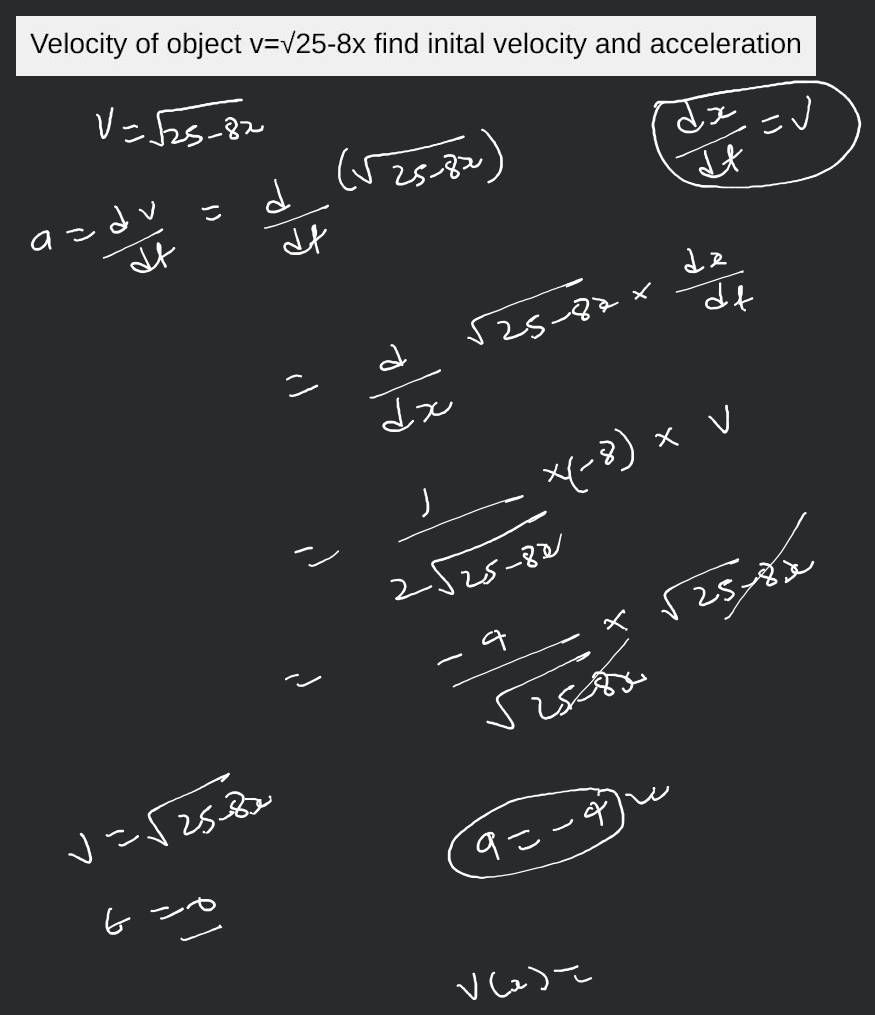 Velocity of object v=√25-8x find inital velocity and acceleration
V = √25-8x
dx/dt = V
a = dv/dt = d/dt (√25-8x)
= d/dx √25-8x × dx/dt
= 1/2√25-8x ×(-8) × V
= -4/√25-8x × √25-8x
V = √25-8x
a = -4
t = 0
V(x) =